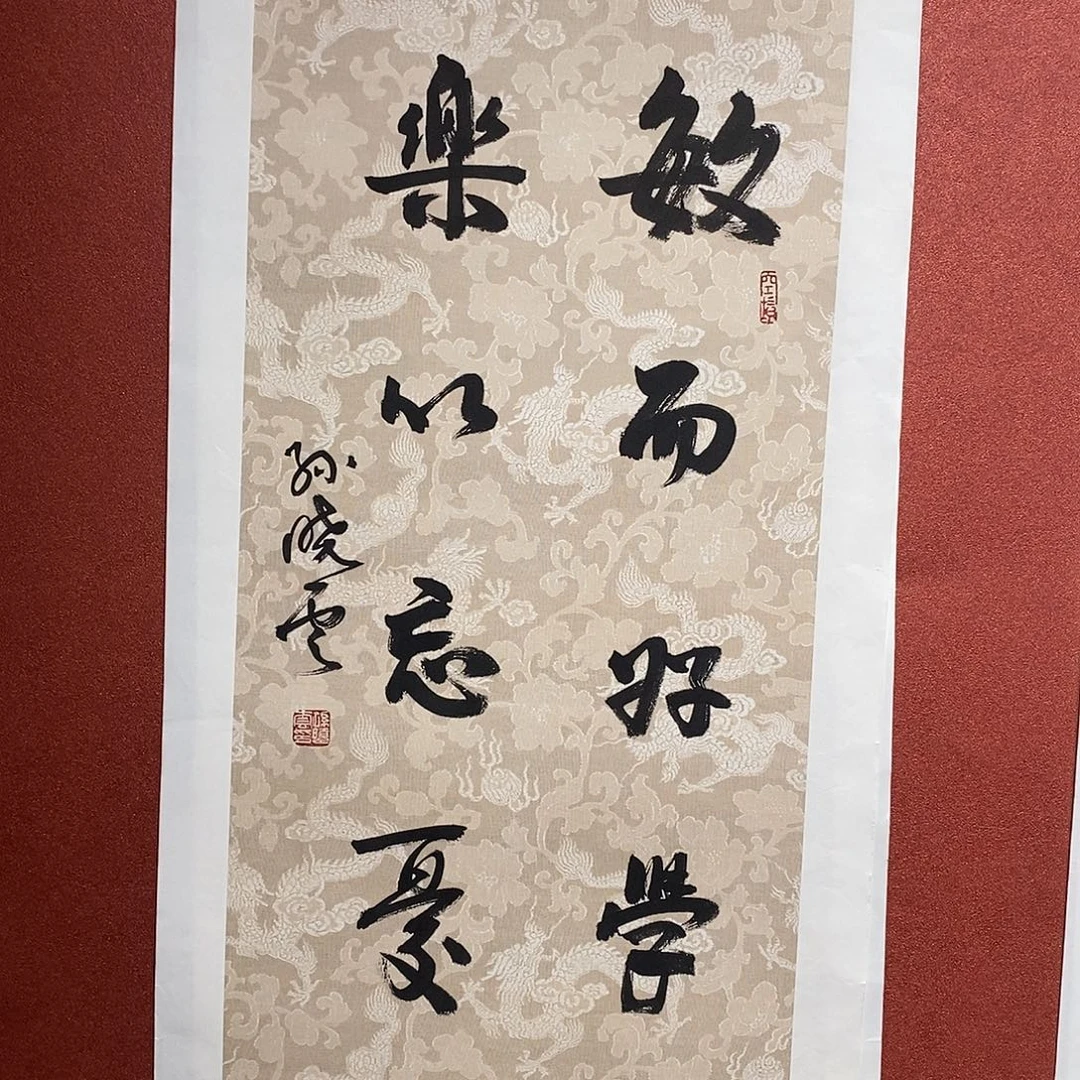 敏而好學
樂以忘憂
孙晓云